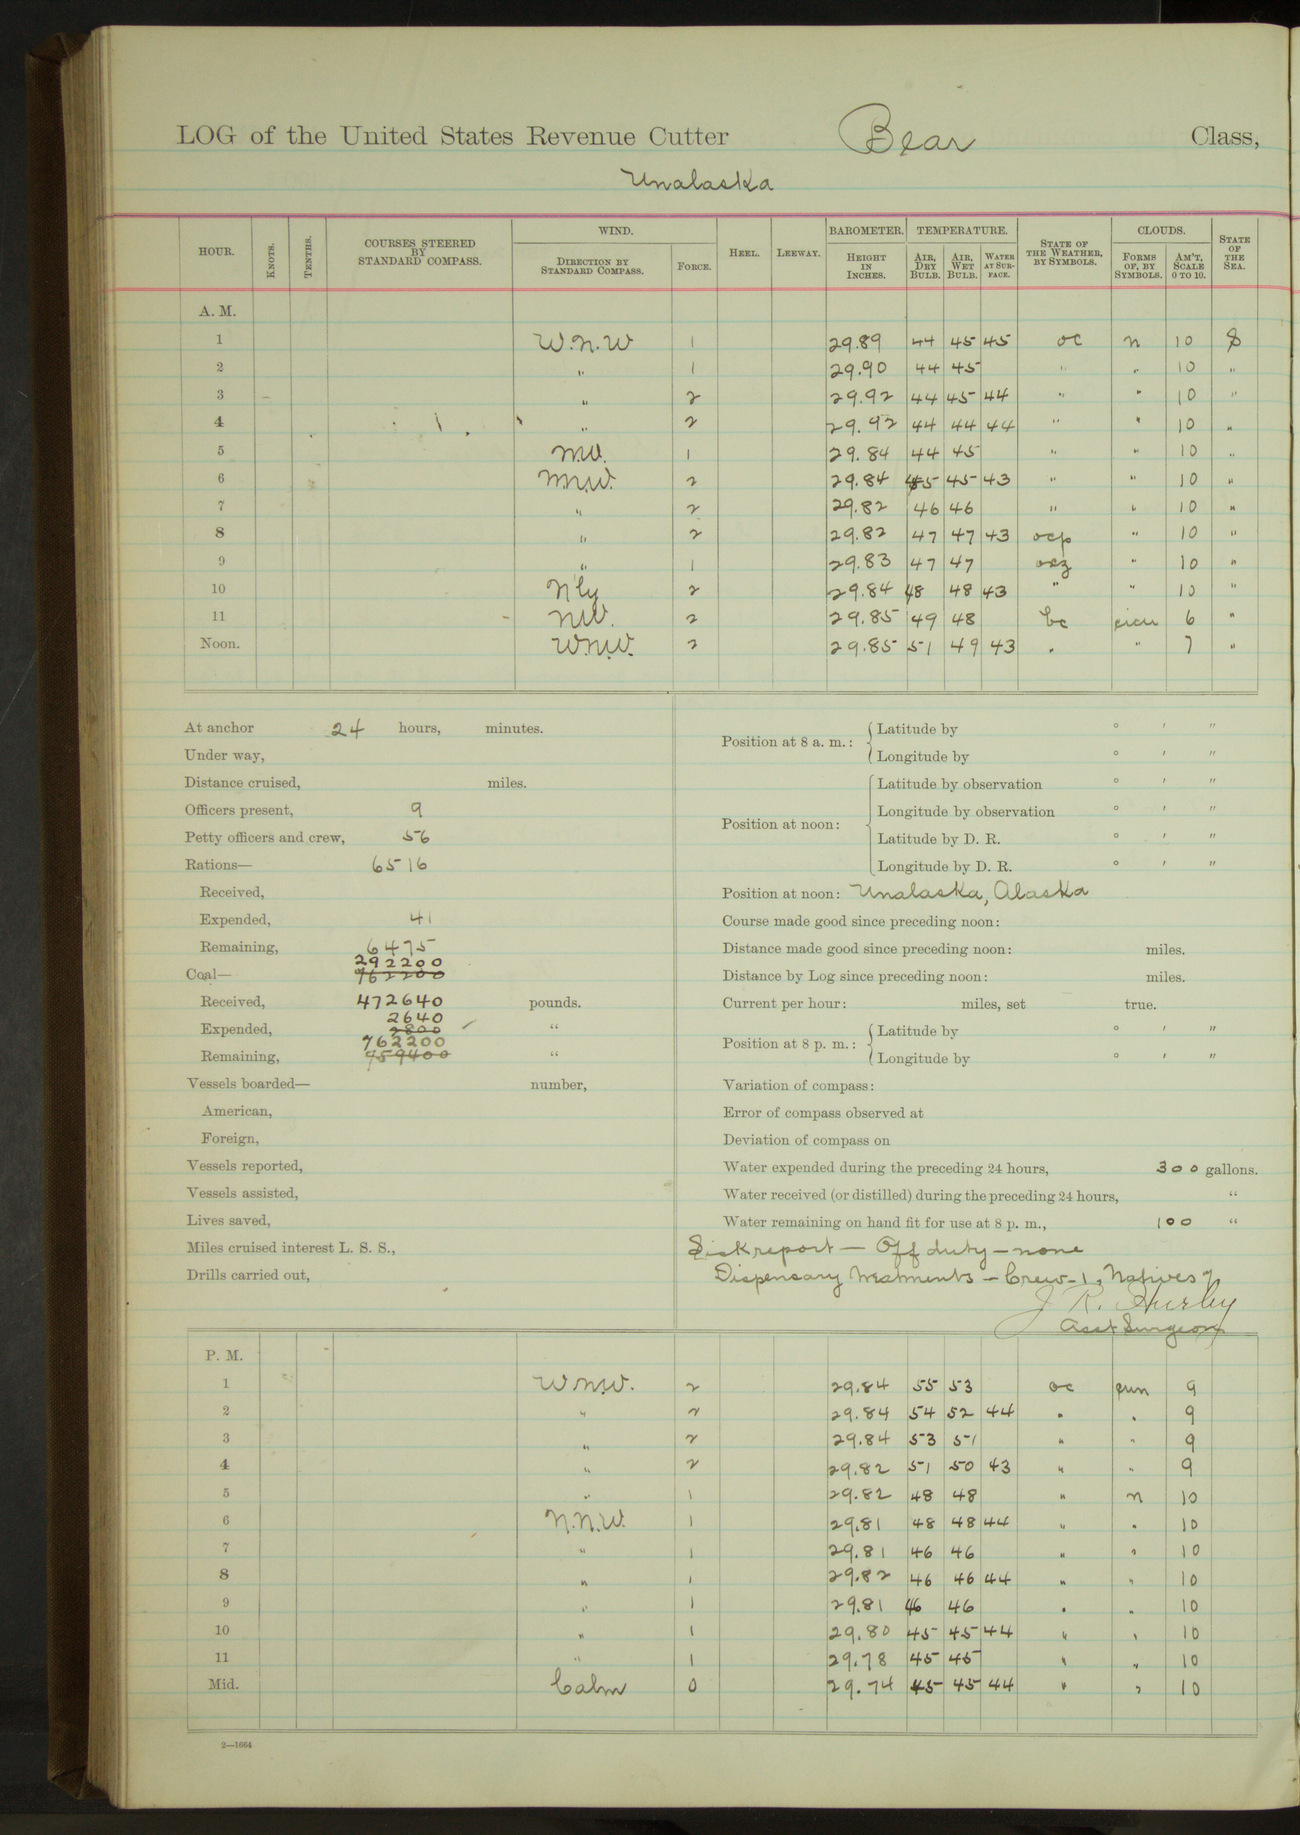 LOG of the United States Revenue Cutter Bear Class,
Unalaska
HOUR. KNOTS. TENTHS. COURSES STEERED BY STANDARD COMPASS. WIND. DIRECTION BY STANDARD COMPASS. FORCE. HEEL. LEEWAY. BAROMETER. HEIGHT IN INCHES. TEMPERATURE. AIR, DRY BULB. AIR, WET BULB. WATER AT SURFACE. STATE OF THE WEATHER, BY SYMBOLS. CLOUDS. FORMS OF, BY SYMBOLS. AM'T, SCALE 0 TO 10. STATE OF THE SEA.
A. M.
1 W.N.W 1 29.89 44 45 45 oc n 10 S
2 " 1 29.90 44 45 " " 10 "
3 " 2 29.92 44 45 44 " " 10 "
4 " 2 29.92 44 44 44 " " 10 "
5 NW. 1 29.84 44 45 " " 10 "
6 NNW. 2 29.84 45 45 43 " " 10 "
7 " 2 29.82 46 46 " " 10 "
8 " 2 29.82 47 47 43 ocp " 10 "
9 " 1 29.83 47 47 ocz " 10 "
10 N'ly 2 29.84 48 48 43 " " 10 "
11 NW. 2 29.85 49 48 bc cicu 6 "
Noon. WNW. 2 29.85 51 49 43 " " 7 "
At anchor 24 hours, minutes.
Under way,
Distance cruised, miles.
Officers present, 9
Petty officers and crew, 56
Rations— 6516
Received,
Expended, 41
Remaining, 6475
292200
Coal— 762200
Received, 472640 pounds.
2640
Expended, 2800 "
762200
Remaining, 759400 "
Vessels boarded— number,
American,
Foreign,
Vessels reported,
Vessels assisted,
Lives saved,
Miles cruised interest L. S. S.,
Drills carried out,
Position at 8 a. m.: Latitude by ° ′ ″
Longitude by ° ′ ″
Position at noon: Latitude by observation ° ′ ″
Longitude by observation ° ′ ″
Latitude by D. R. ° ′ ″
Longitude by D. R. ° ′ ″
Position at noon: Unalaska, Alaska
Course made good since preceding noon:
Distance made good since preceding noon: miles.
Distance by Log since preceding noon: miles.
Current per hour: miles, set true.
Position at 8 p. m.: Latitude by ° ′ ″
Longitude by ° ′ ″
Variation of compass:
Error of compass observed at
Deviation of compass on
Water expended during the preceding 24 hours, 300 gallons.
Water received (or distilled) during the preceding 24 hours, "
Water remaining on hand fit for use at 8 p. m., 100 "
Sick report — Off duty — none
Dispensary treatments — Crew-1, Natives 7
J. R. Hurley
Asst Surgeon
P. M.
1 WNW. 2 29.84 55 53 oc cun 9
2 " 2 29.84 54 52 44 " " 9
3 " 2 29.84 53 51 " " 9
4 " 2 29.82 51 50 43 " " 9
5 " 1 29.82 48 48 " n 10
6 N.N.W. 1 29.81 48 48 44 " " 10
7 " 1 29.81 46 46 " " 10
8 " 1 29.82 46 46 44 " " 10
9 " 1 29.81 46 46 " " 10
10 " 1 29.80 45 45 44 " " 10
11 " 1 29.78 45 45 " " 10
Mid. Calm 0 29.74 45 45 44 " " 10
2—1664